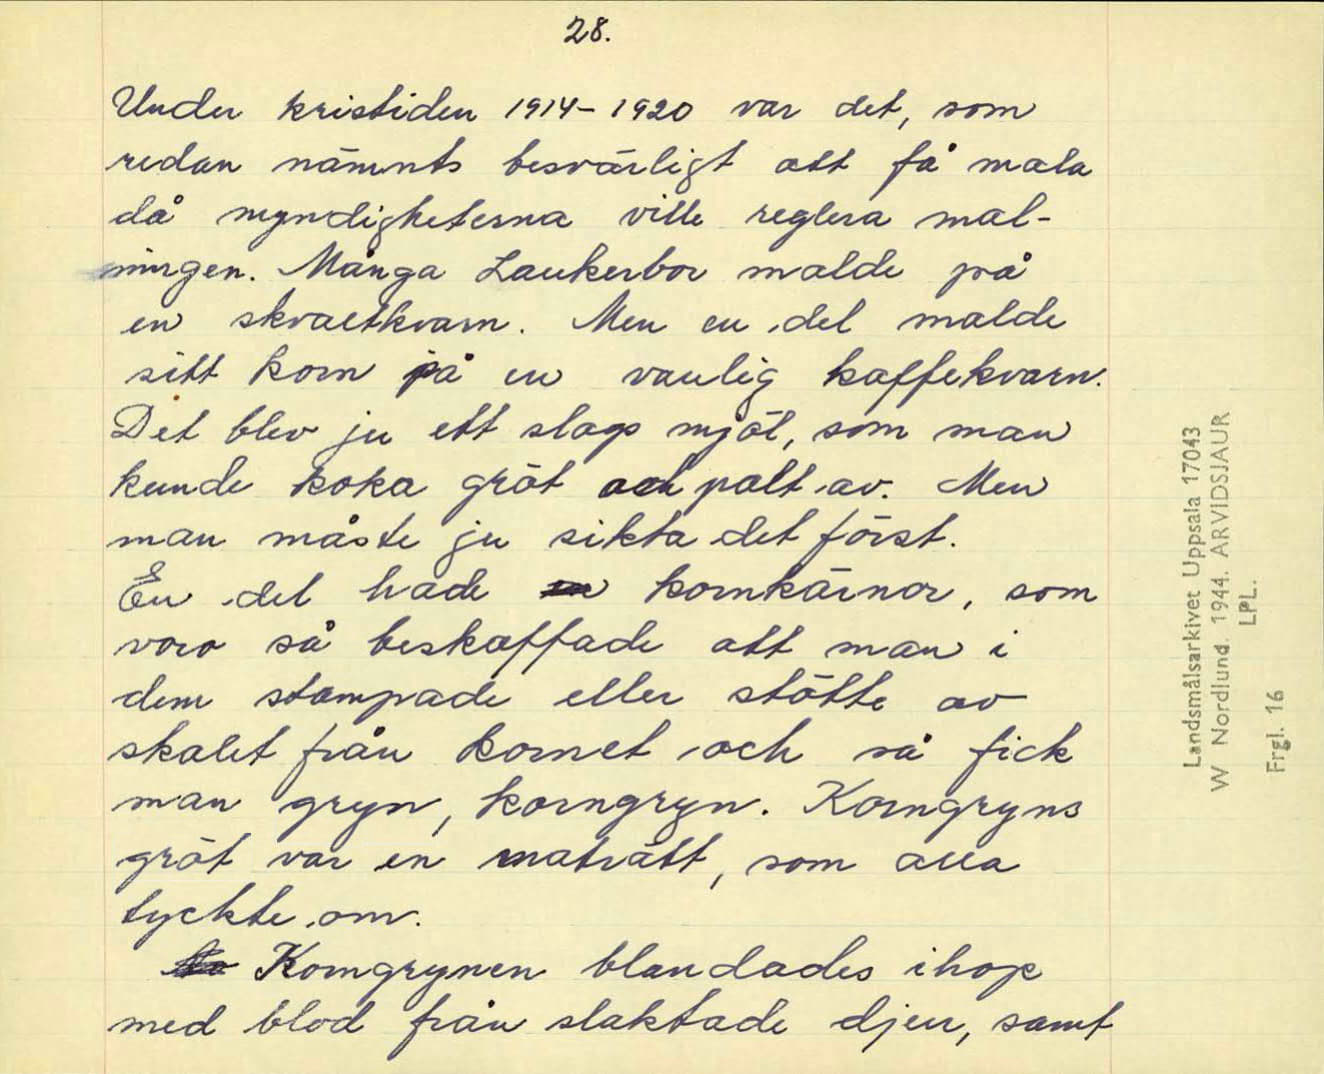 28.
Under kristiden 1914-1920 var det, som
redan nämnts besvärligt att få mala
då myndigheterna ville reglera mal-
ningen. Många Laukerbor malde på
en skvaltkvarn. Men en del malde
sitt korn på en vanlig kaffekvarn.
Det blev ju ett slags mjöl, som man
kunde koka gröt och palt av. Men
man måste ju sikta det först.
En del hade kornkärnor, som
voro så beskaffade att man i
dem stampade eller stötte av
skalet från kornet och så fick
man gryn, korngryn. Korngryns
gröt var en maträtt, som alla
tyckte om.
Korngrynen blandades ihop
med blod från slaktade djur, samt
Landsmålsarkivet Uppsala 17043
W Nordlund. 1944. ARVIDSJAUR
LPL.
Frgl. 16